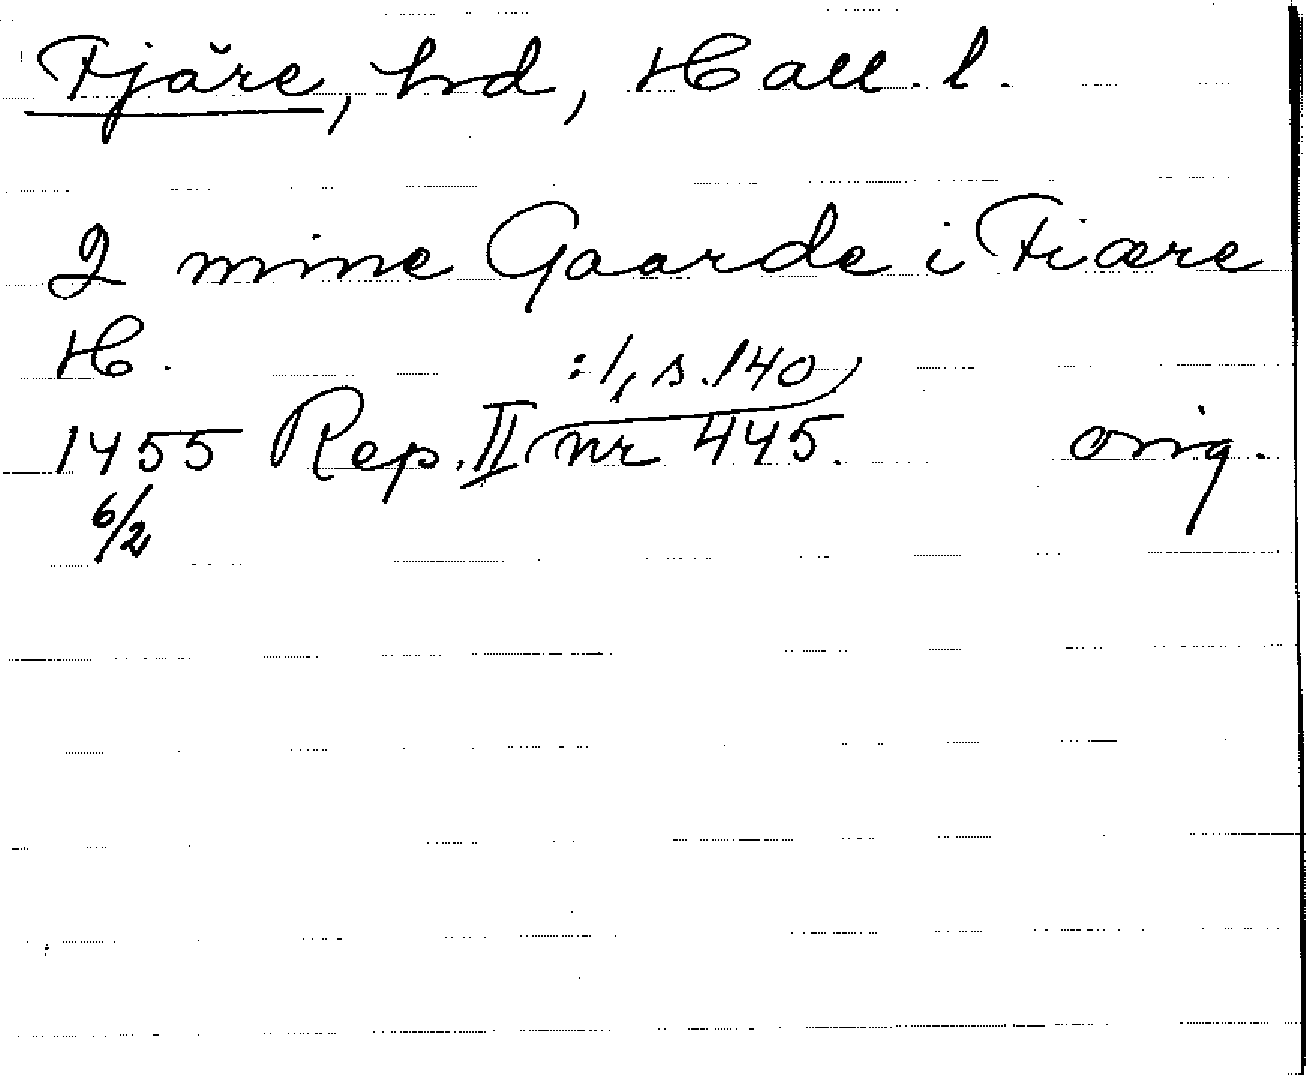 Fjäre, hd, Hall. l.
2 mine Gaarde i Fiære
H.
:1, s. 140
1455 Rep. II nr 445. orig.
6/2